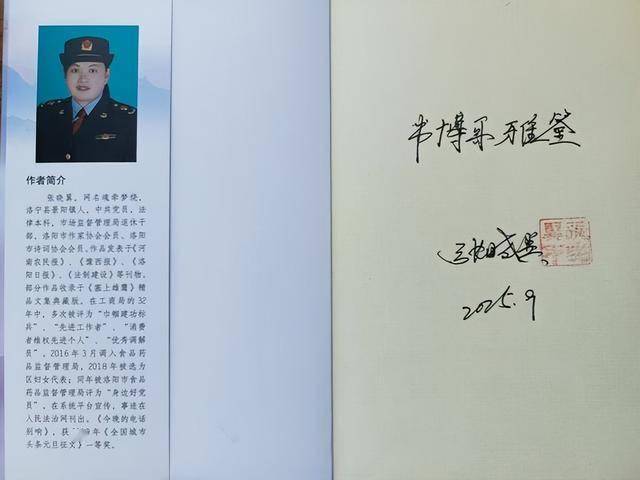 作者简介
张晓翼，网名魂牵梦绕，
洛宁县景阳镇人，中共党员，法
律本科，市场监督管理局退休干
部，洛阳市作家协会会员、洛阳
市诗词协会会员。作品发表于《河
南农民报》、《豫西报》、《洛
阳日报》、《法制建设》等刊物。
部分作品收录于《塞上雄鹰》精
品文集典藏版。在工商局的32
年中，多次被评为“巾帼建功标
兵”、“先进工作者”、“消费
者维权先进个人”、“优秀调解
员”。2016年3月调入食品药
品监督管理局，2018年被选为
区妇女代表；同年被洛阳市食品
药品监督管理局评为“身边好党
员”，在系统平台宣传，事迹在
人民法治网刊出。《今晚的电话
别响》，获 年《全国城市
头条元旦征文》一等奖。
韦博采雅鉴
张晓翼
2025.9